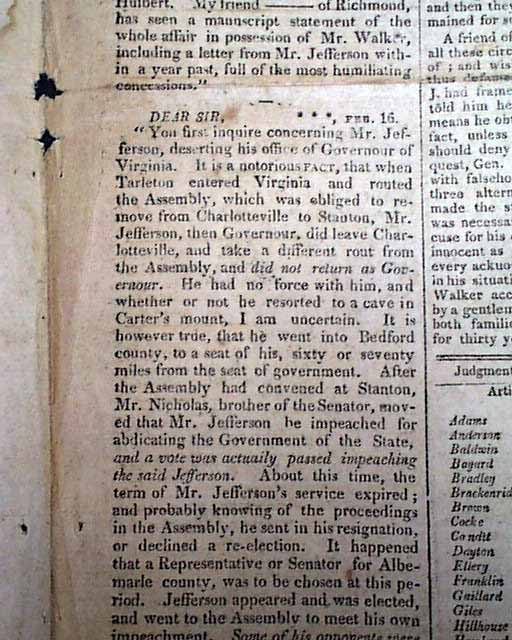 Hulbert. My friend —— of Richmond,
has seen a manuscript statement of the
whole affair in possession of Mr. Walker,
including a letter from Mr. Jefferson with-
in a year past, full of the most humiliating
concessions."
DEAR SIR, * * *, FEB. 16.
"You first inquire concerning Mr. Jef-
ferson, deserting his office of Governour of
Virginia. It is a notorious FACT, that when
Tarleton entered Virginia and routed
the Assembly, which was obliged to re-
move from Charlotteville to Stanton, Mr.
Jefferson, then Governour, did leave Char-
lotteville, and take a different rout from
the Assembly, and did not return as Gov-
ernour. He had no force with him, and
whether or not he resorted to a cave in
Carter's mount, I am uncertain. It is
however true, that he went into Bedford
county, to a seat of his, sixty or seventy
miles from the seat of government. After
the Assembly had convened at Stanton,
Mr. Nicholas, brother of the Senator, mov-
ed that Mr. Jefferson be impeached for
abdicating the Government of the State,
and a vote was actually passed impeaching
the said Jefferson. About this time, the
term of Mr. Jefferson's service expired;
and probably knowing of the proceedings
in the Assembly, he sent in his resignation,
or declined a re-election. It happened
that a Representative or Senator for Albe-
marle county, was to be chosen at this pe-
riod. Jefferson appeared and was elected,
and went to the Assembly to meet his own
impeachment. Some of his opponents were
and then they
mained for
A friend of
all these circ
of; and wis
thus defames
J. had frame
told him he
means he ob
fact, unless
should deny
quest, Gen.
with falseho
three altern
made the s
was necessa
cuse for his
innocent as
every acknuo
in his situati
Walker acc
by a gentlem
both familie
for thirty y
Judgment
Arti
Adams
Anderson
Baldwin
Bayard
Bradley
Brackenrid
Brown
Cocke
Condit
Dayton
Ellery
Franklin
Gaillard
Giles
Hillhouse